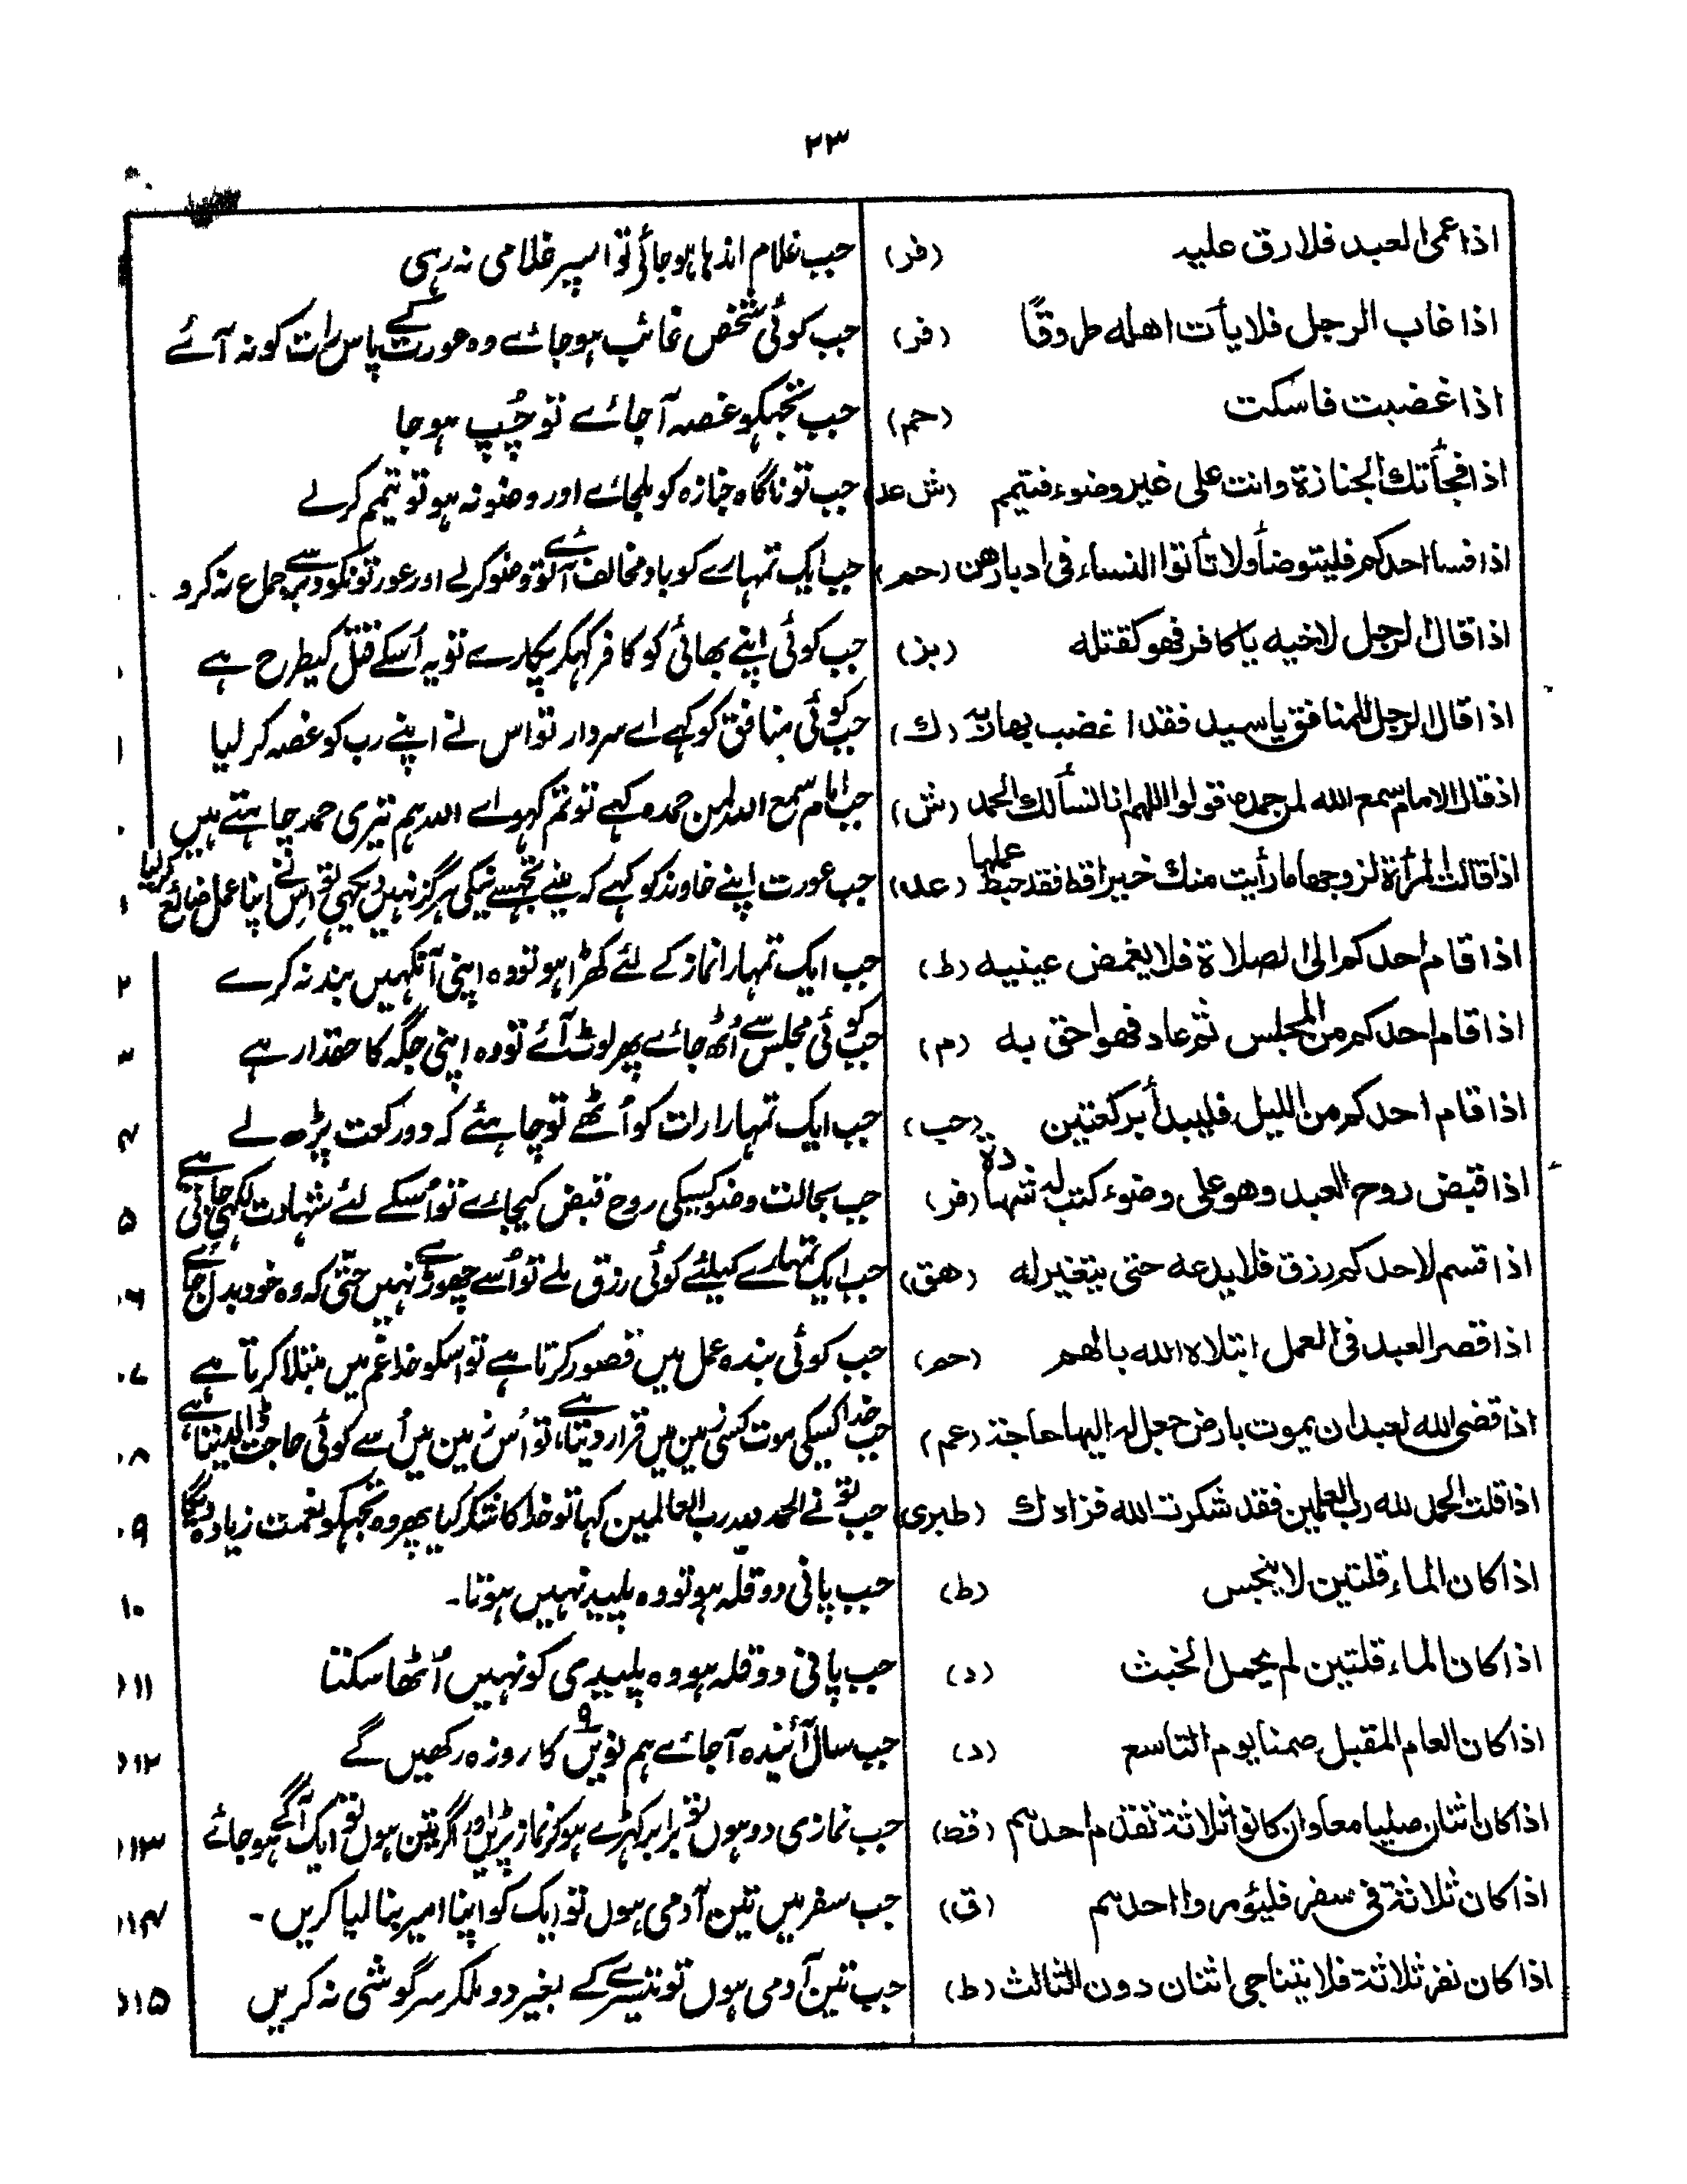 ۲۳
اذا عمی العبد فلا رق علیہ (فر) جب غلام اندہا ہو جائی تو اسپر غلامی نہ رہی
اذا غاب الرجل فلا یأت اهله طروقًا (فر) جب کوئی شخص غائب ہو جائے وہ عورت کے پاس رات کو نہ آئے
اذا غضبت فاسکت (حم) جب تجہکو غصہ آ جائے تو چُپ ہو جا
اذا فجأتك الجنازة وانت علی غیر وضوء فتیمم (ش عد) جب تو ناگاہ جنازہ کو ملجائے اور وضو نہ ہو تو تیمم کرلے
اذا فسا احدکم فلیتوضأ ولا تأتوا النساء فی ادبارهن (حم) جب ایک تمہارے کو باد مخالف آئے تو وضو کرلے اور عورتونکو دبر سے جماع نہ کرو
اذا قال الرجل لاخیه یا کافر فهو کقتله (بز) جب کوئی اپنے بھائی کو کافر کہکر پکارے تو یہ اُسکے قتل کیطرح ہے
اذا قال الرجل للمنافق یا سید فقد اغضب بهاربه (ك) جب کوئی منافق کو کہے اے سردار تو اس نے اپنے رب کو غصہ کر لیا
اذ قال الامام سمع الله لمن حمده قولوا اللهم انا نسألك الحمد (ش) جب امام سمع اللہ لمن حمدہ کہے تو تم کہو اے اللہ ہم تیری حمد چاہتے ہیں
اذا قالت المرأة لزوجها ما رأیت منك خیرا قط فقد حبط عملها (عد) جب عورت اپنے خاوند کو کہے کہ مینے تجہسے نیکی ہرگز نہیں دیکہی تو اس نے اپنا عمل ضائع کر لیا
اذا قام احدکم الی الصلاة فلا یغمض عینیه (ط) جب ایک تمہارا نماز کے لئے کھڑا ہو تو وہ اپنی آنکہیں بند نہ کرے ۲
اذا قام احدکم من المجلس ثم عاد فهو احق به (م) جب کوئی مجلس سے اُٹھ جائے پھر لوٹ آئے تو وہ اپنی جگہ کا حقدار ہے ۳
اذا قام احدکم من اللیل فلیبدأ برکعتین (حب) جب ایک تمہارا رات کو اُٹھے تو چاہئے کہ دو رکعت پڑھ لے ۴
اذا قبض روح العبد وهو علی وضوء کتب له شهادة (فر) جب بحالت وضو کسیکی روح قبض کیجائے تو اُسکے لئے شہادت لکہی جاتی ہے ۵
اذا قسم لاحدکم رزق فلا یدعه حتی یتغیر له (هق) جب ایک تمہارے کیلئے کوئی رزق ملے تو اُسے چھوڑے نہیں حتّی کہ وہ خود بدل جائے ۶
اذا قصر العبد فی العمل ابتلاه الله بالهم (حم) جب کوئی بندہ عمل میں قصور کرتا ہے تو اسکو خدا غم میں مبتلا کرتا ہے ۷
اذا قضی الله لعبد ان یموت بارض جعل له الیها حاجة (عم) جب خدا کسیکی موت کسی زمین میں قرار دیتا ہے، تو اُس زمین میں اُسے کوئی حاجت ڈالدیتا ہے ۸
اذا قلت الحمد لله رب العلمین فقد شکرت الله فزادك (طبری) جب تو نے الحمد للہ رب العالمین کہا تو خدا کا شکر کیا پھر وہ تجہکو نعمت زیادہ دیگا ۹
اذا کان الماء قلتین لا ینجس (ط) جب پانی دو قلّہ ہو تو وہ پلید نہیں ہوتا۔ ۱۰
اذا کان الماء قلتین لم یحمل الخبث (د) جب پانی دو قلہ ہو وہ پلیدی کو نہیں اُٹھا سکتا ۱۱
اذا کان العام المقبل صمنا یوم التاسع (د) جب سال آئندہ آ جائے ہم نویں ۹ کا روزہ رکھیں گے ۱۲
اذا کان اثنان صلیا معا وان کانوا ثلاثة تقدم احدهم (قط) جب نمازی دو ہوں تو برابر کہڑے ہو کر نماز پڑہیں اور اگر تین ہوں تو ایک آگے ہو جائے ۱۳
اذا کان ثلاثة فی سفر فلیؤمروا احدهم (ق) جب سفر میں تین آدمی ہوں تو ایک کو اپنا امیر بنا لیا کریں ۔ ۱۴
اذا کان نفر ثلاثة فلا یتناجی اثنان دون الثالث (ط) جب تین آدمی ہوں تو تیسرے کے بغیر دو ملکر سرگوشی نہ کریں ۱۵